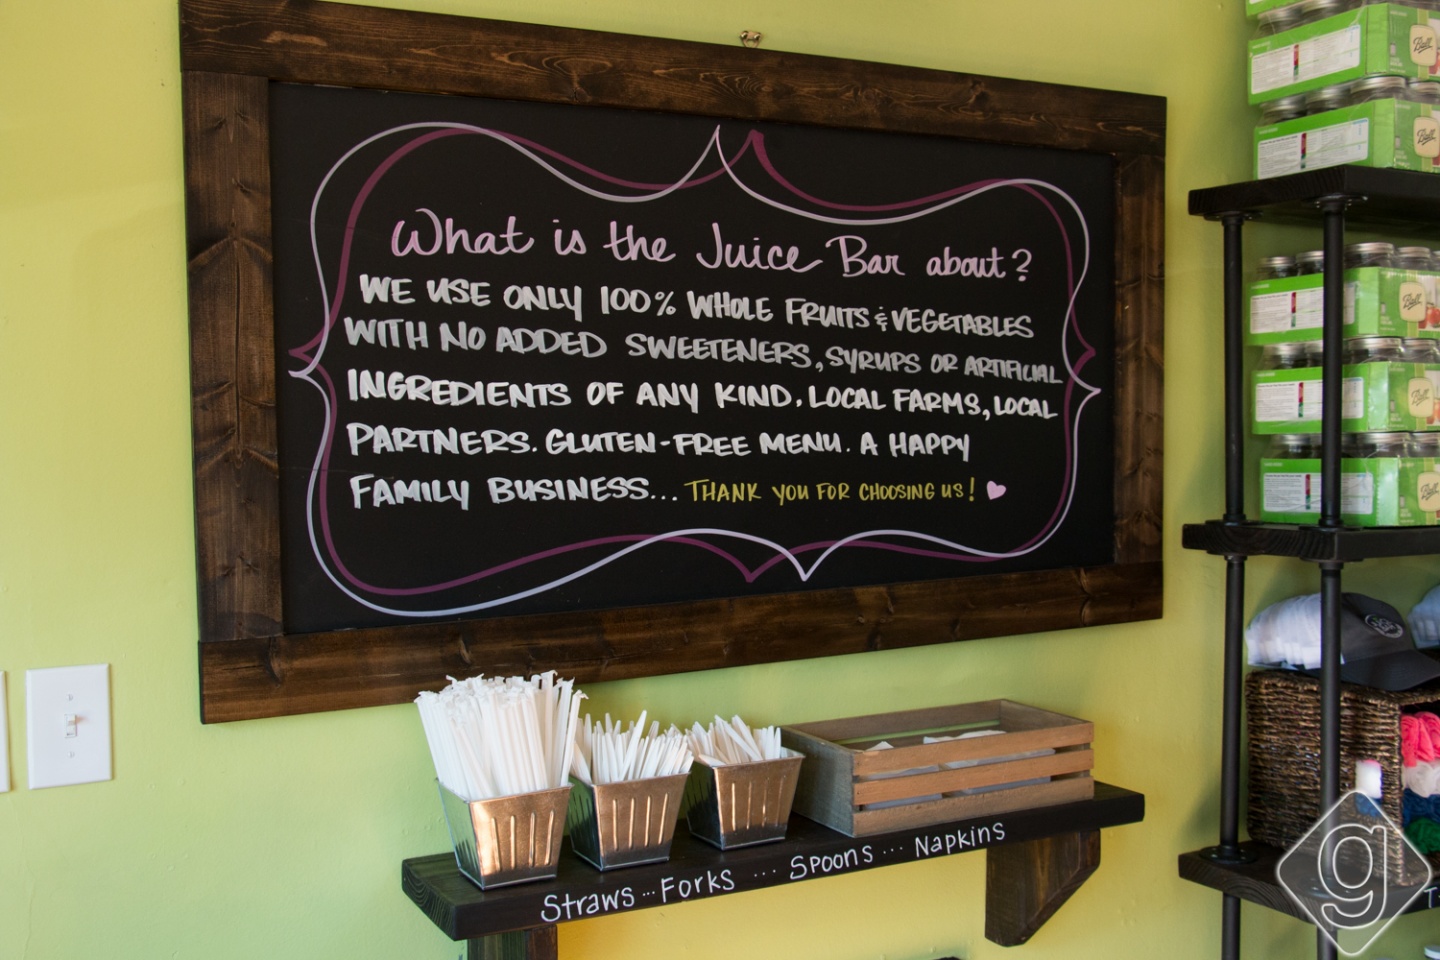 What is the Juice Bar about?
WE USE ONLY 100% WHOLE FRUITS & VEGETABLES
WITH NO ADDED SWEETENERS, SYRUPS OR ARTIFICIAL
INGREDIENTS OF ANY KIND. LOCAL FARMS, LOCAL
PARTNERS. GLUTEN-FREE MENU. A HAPPY
FAMILY BUSINESS... THANK YOU FOR CHOOSING US!
Straws ... Forks ... Spoons ... Napkins
Ball
Ball
Ball
Ball
Ball
g